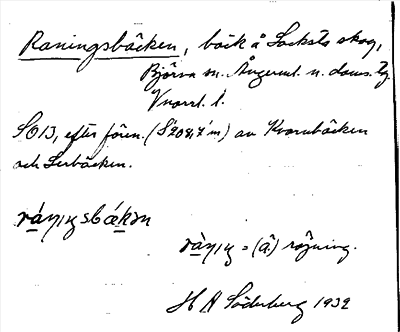 Raningsbäcken, bäck å Locksta skog,
Björna sn. Ångerml. n. doms. tg.
Vnorrl. l.
S 613, efter fören. (S 208,7 m) av Kvarnbäcken
och Lerbäcken.
ráṇıŋsbǽkən
ràṇıŋ = (å) röjning.
H A Söderberg 1932